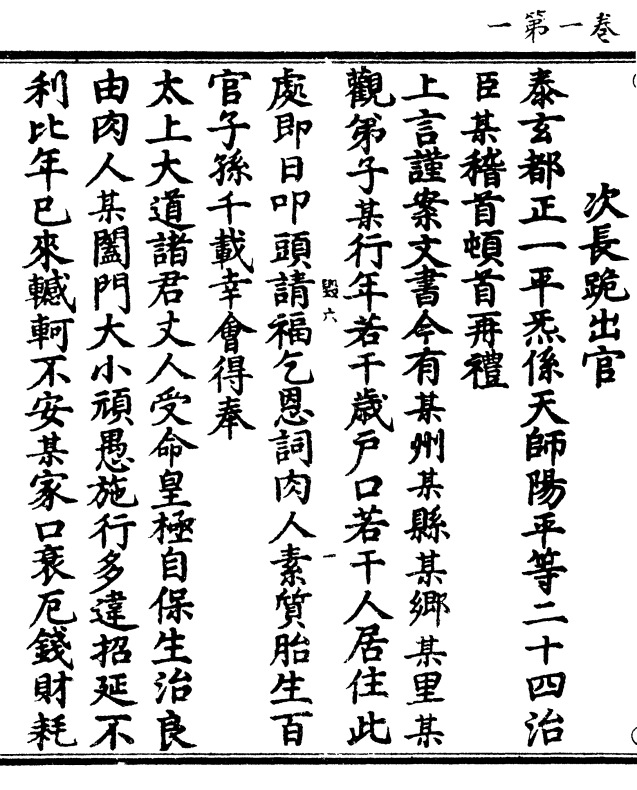 卷一第一
次長跪出官
泰玄都正一平炁係天師陽平等二十四治
臣某稽首頓首再禮
上言謹案文書今有某州某縣某鄉某里某
觀弟子某行年若干歲戶口若干人居住此
處即日叩頭請福乞恩詞肉人素質胎生百
毀六
一
官子孫千載幸會得奉
太上大道諸君丈人受命皇極自保生治良
由肉人某闔門大小頑愚施行多違招延不
利比年已來轗軻不安某家口衰厄錢財耗